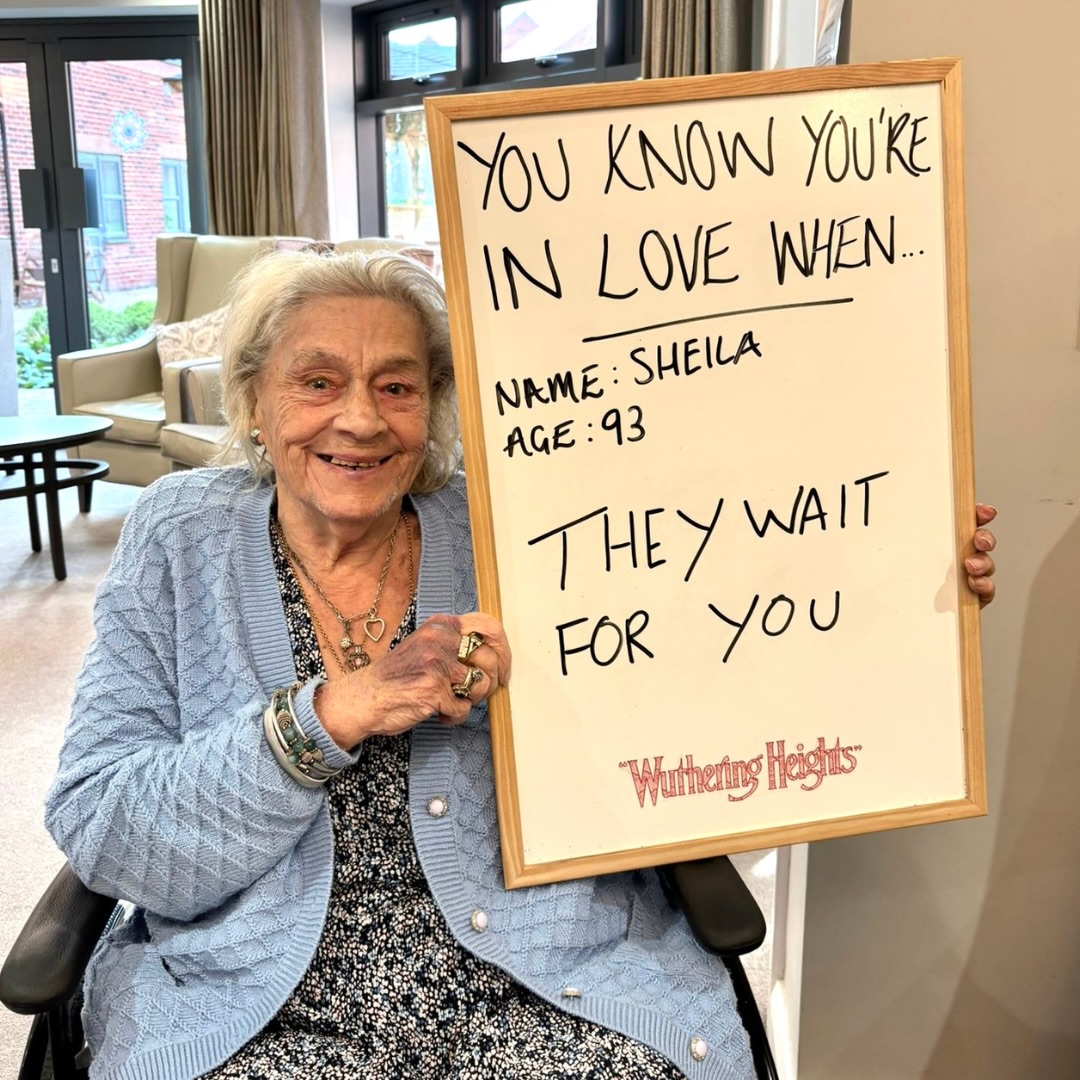 YOU KNOW YOU'RE
IN LOVE WHEN...
NAME: SHEILA
AGE: 93
THEY WAIT
FOR YOU
"Wuthering Heights"